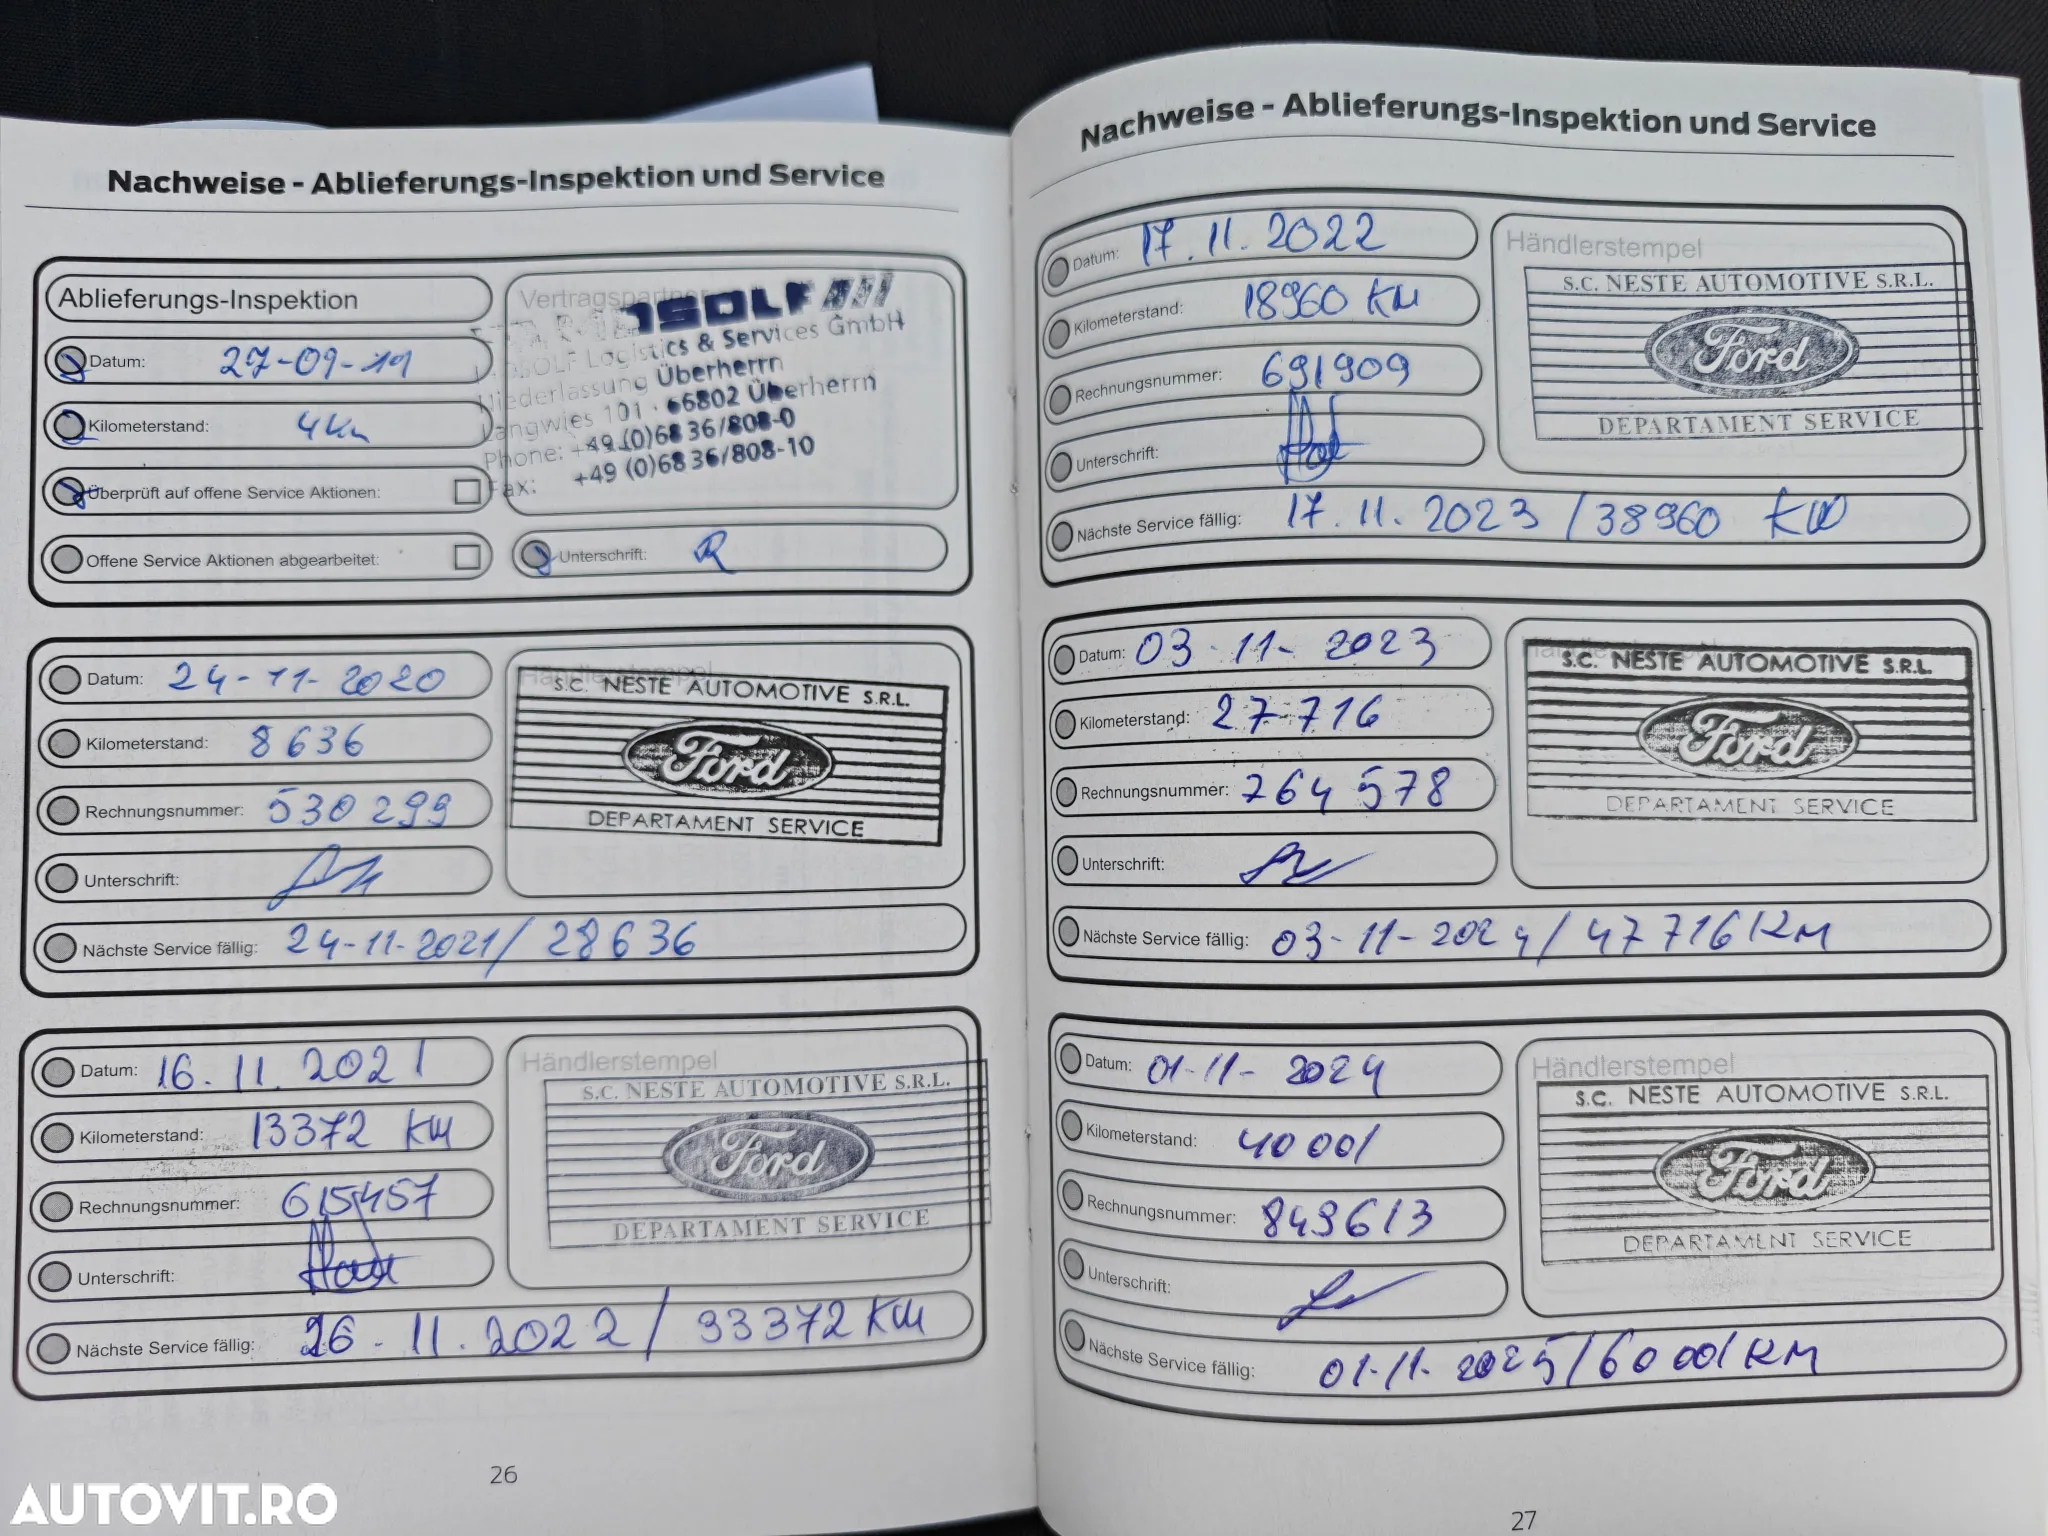 Nachweise - Ablieferungs-Inspektion und Service
Ablieferungs-Inspektion
Datum: 27-09-19
Kilometerstand: 4 Km
Überprüft auf offene Service Aktionen:
Offene Service Aktionen abgearbeitet:
Vertragspartner
MOSOLF
MOSOLF Logistics & Services GmbH
Niederlassung Überherrn
Langwies 101 · 66802 Überherrn
Phone: +49 (0)68 36/808-0
Fax: +49 (0)68 36/808-10
Unterschrift:
Datum: 24-11-2020
Kilometerstand: 8636
Rechnungsnummer: 530299
Unterschrift:
Nächste Service fällig: 24-11-2021/28636
Händlerstempel
S.C. NESTE AUTOMOTIVE S.R.L.
Ford
DEPARTAMENT SERVICE
Datum: 16.11.2021
Kilometerstand: 13372 KM
Rechnungsnummer: 615457
Unterschrift:
Nächste Service fällig: 16-.11.2022/33372 KM
Händlerstempel
S.C. NESTE AUTOMOTIVE S.R.L.
Ford
DEPARTAMENT SERVICE
26
Nachweise - Ablieferungs-Inspektion und Service
Datum: 17.11.2022
Kilometerstand: 18960 KM
Rechnungsnummer: 691909
Unterschrift:
Nächste Service fällig: 17.11.2023/38960 KM
Händlerstempel
S.C. NESTE AUTOMOTIVE S.R.L.
Ford
DEPARTAMENT SERVICE
Datum: 03-11-2023
Kilometerstand: 27716
Rechnungsnummer: 764578
Unterschrift:
Nächste Service fällig: 03-11-2024/47716 KM
Händlerstempel
S.C. NESTE AUTOMOTIVE S.R.L.
Ford
DEPARTAMENT SERVICE
Datum: 01-11-2024
Kilometerstand: 40001
Rechnungsnummer: 849613
Unterschrift:
Nächste Service fällig: 01-11-2025/60001 KM
Händlerstempel
S.C. NESTE AUTOMOTIVE S.R.L.
Ford
DEPARTAMENT SERVICE
27
AUTOVIT.RO